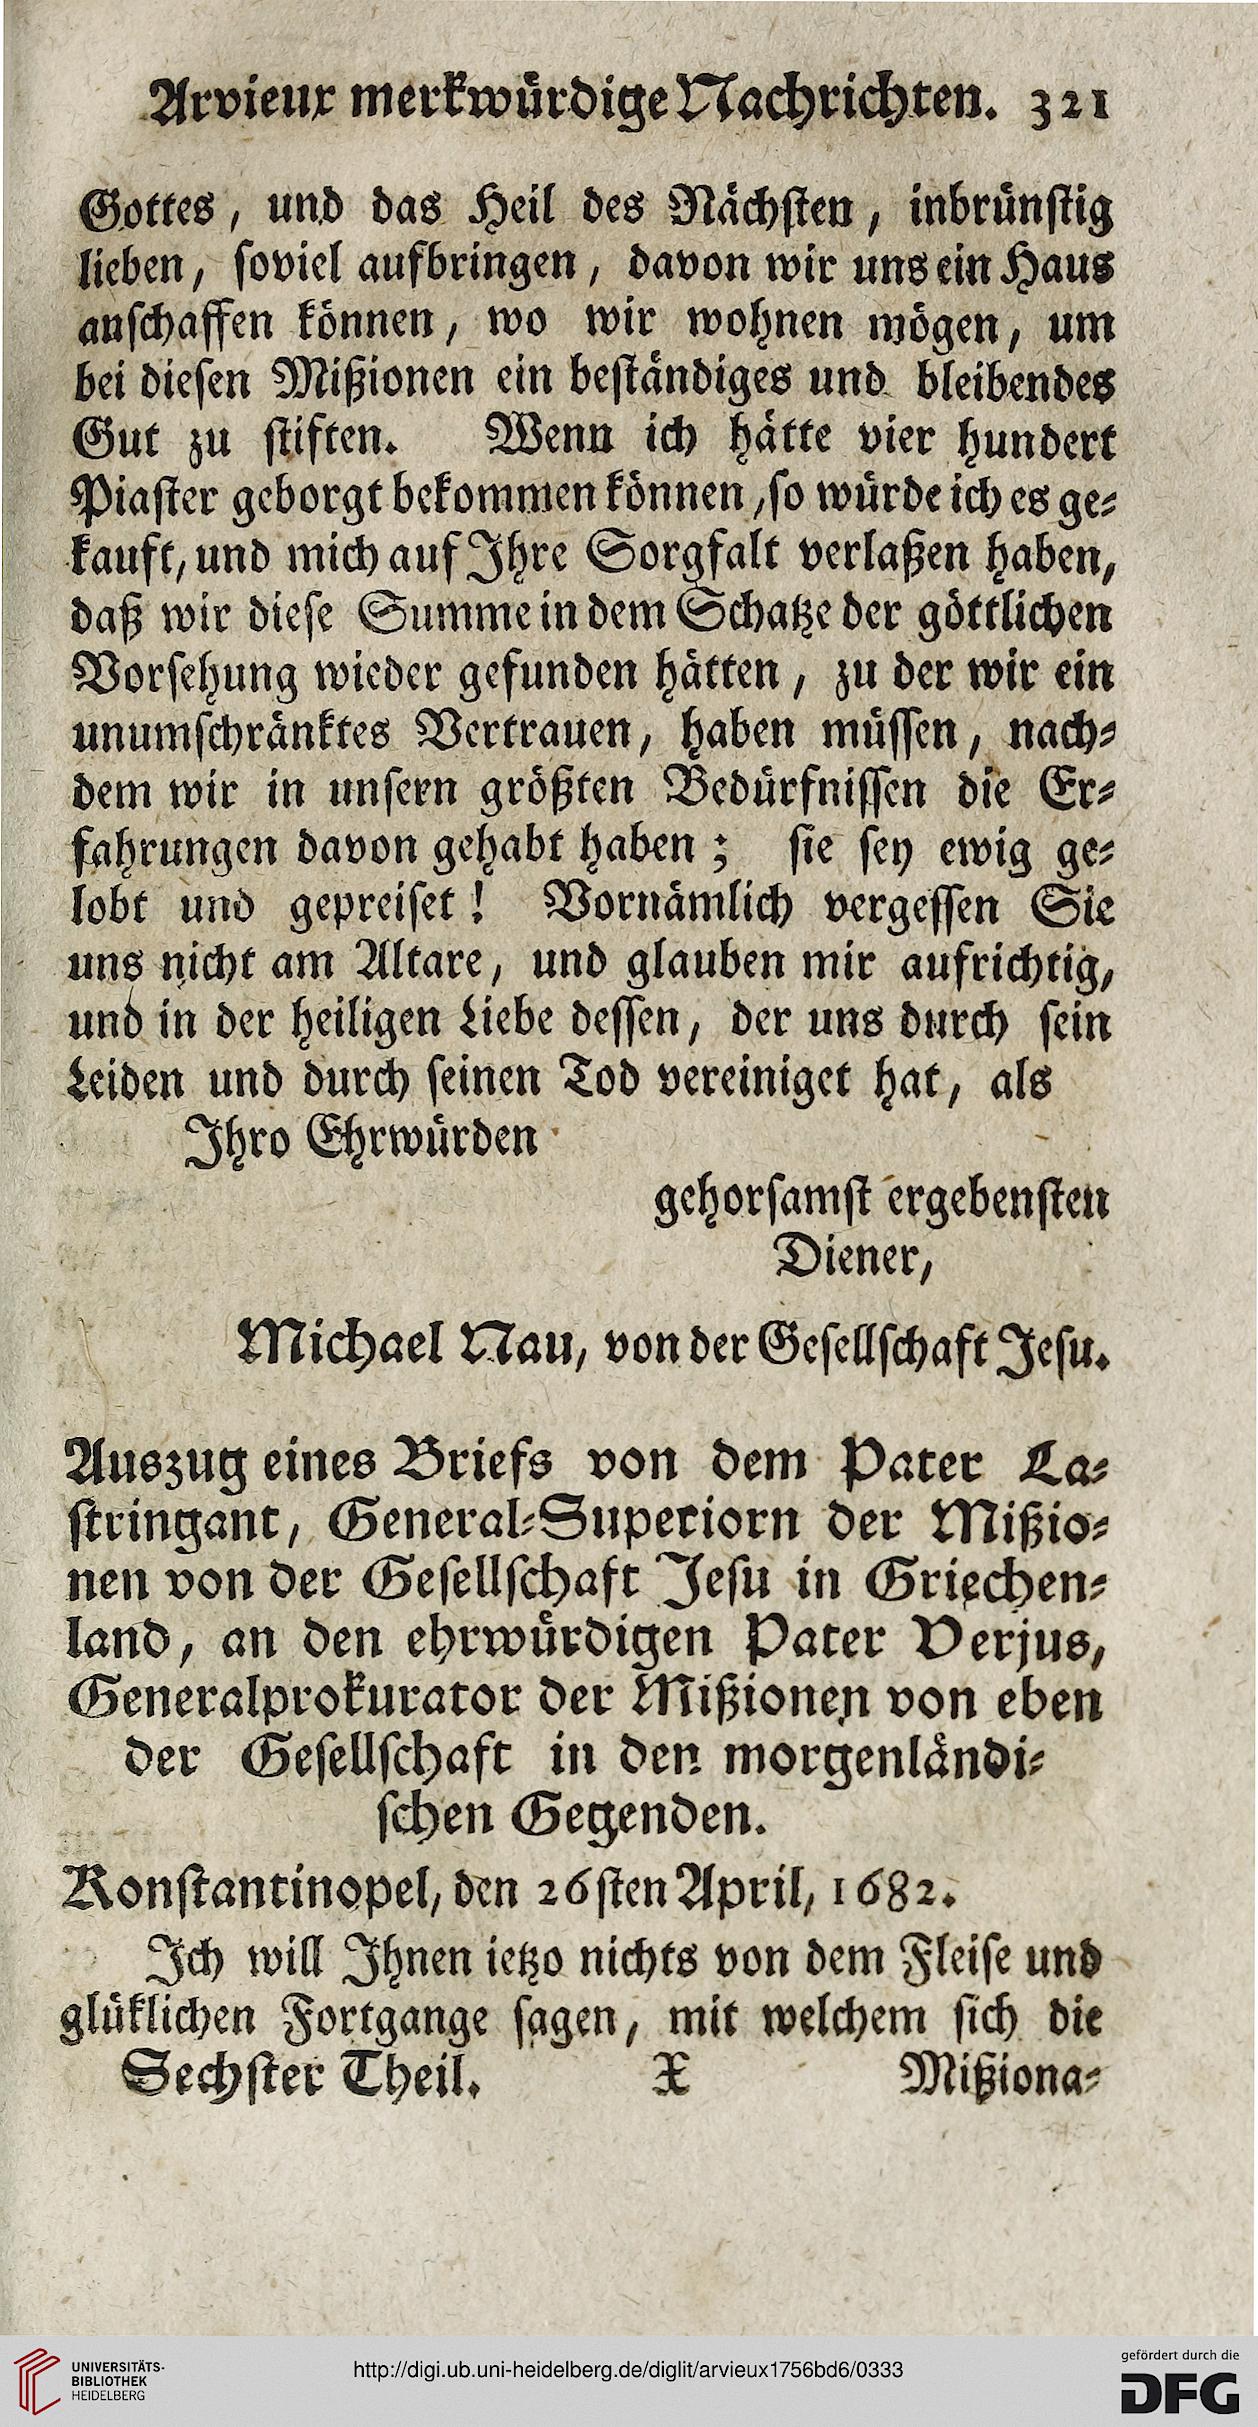 Arvieux merkwürdige Nachrichten. 321
Gottes, und das Heil des Nächsten, inbrünstig
lieben, soviel aufbringen, davon wir uns ein Haus
anschaffen können, wo wir wohnen mögen, um
bei diesen Mißionen ein beständiges und bleibendes
Gut zu stiften. Wenn ich hätte vier hundert
Piaster geborgt bekommen können, so würde ich es ge-
kauft, und mich auf Ihre Sorgfalt verlaßen haben,
daß wir diese Summe in dem Schatze der göttlichen
Vorsehung wieder gefunden hätten, zu der wir ein
unumschränktes Vertrauen, haben müssen, nach-
dem wir in unsern größten Bedürfnissen die Er-
fahrungen davon gehabt haben; sie sey ewig ge-
lobt und gepreiset! Vornämlich vergessen Sie
uns nicht am Altare, und glauben mir aufrichtig,
und in der heiligen Liebe dessen, der uns durch sein
Leiden und durch seinen Tod vereiniget hat, als
Ihro Ehrwürden
gehorsamst ergebensten
Diener,
Michael Nau, von der Gesellschaft Jesu.
Auszug eines Briefs von dem Pater La-
stringant, General-Superiorn der Mißio-
nen von der Gesellschaft Jesu in Griechen-
land, an den ehrwürdigen Pater Verjus,
Generalprokurator der Mißionen von eben
der Gesellschaft in den morgenländi-
schen Gegenden.
Konstantinopel, den 26sten April, 1682.
Ich will Ihnen ietzo nichts von dem Fleise und
glüklichen Fortgange sagen, mit welchem sich die
Sechster Theil. X Mißiona-
UNIVERSITÄTS-
BIBLIOTHEK
HEIDELBERG
http://digi.ub.uni-heidelberg.de/diglit/arvieux1756bd6/0333
gefördert durch die
DFG